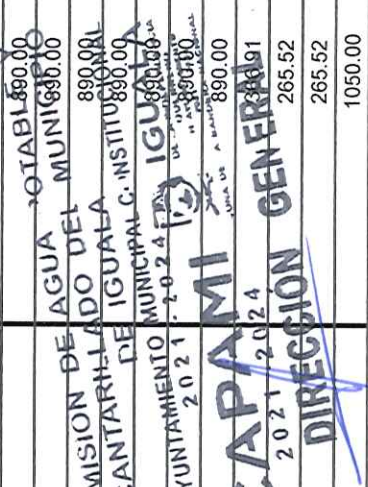 890.00
890.00
890.00
890.00
890.00
890.00
265.52
265.52
1050.00
MISION DE AGUA POTABLE Y
CANTARILLADO DEL MUNICIPIO
DE IGUALA
YUNTAMIENTO MUNICIPAL C. INSTITUCIONAL
2021 - 2024
IGUALA
CAPAMI
2021 2024
DIRECCIÓN GENERAL